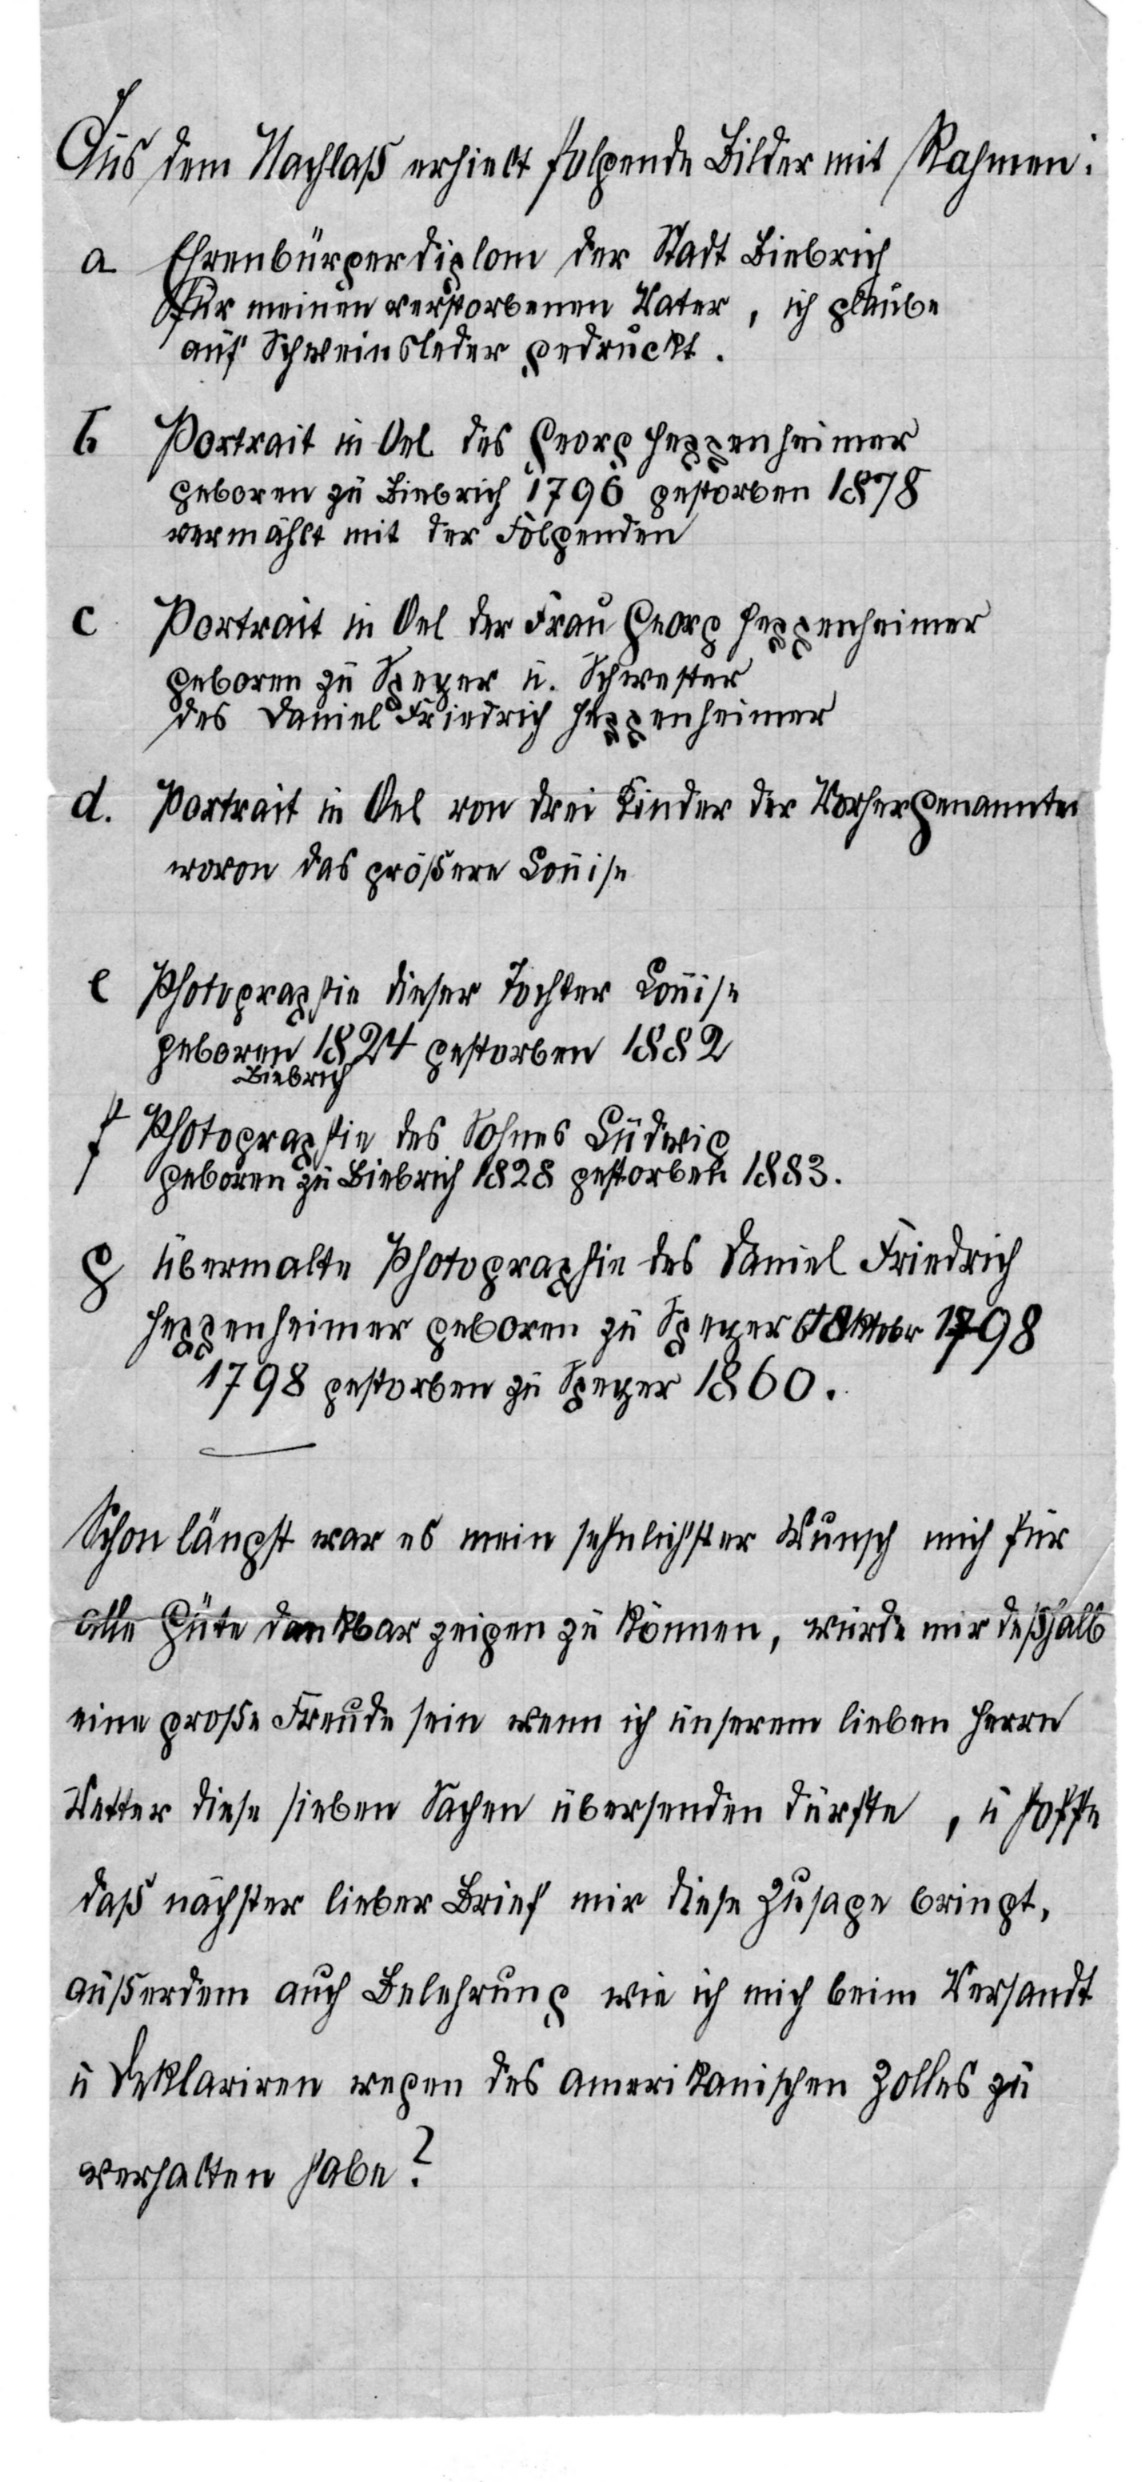 Aus dem Nachlaß erhielt folgende Bilder mit Rahmen:
a Ehrenbürgerdiplom der Stadt Biebrich
für meinen verstorbenen Vater, ich glaube
auf Schweinsleder gedruckt.
b Portrait in Oel des Georg Heppenheimer
geboren zu Biebrich 1796 gestorben 1878
vermählt mit der Folgenden
c Portrait in Oel der Frau Georg Heppenheimer
geboren zu Speyer u. Schwester
des Daniel Friedrich Heppenheimer
d. Portrait in Oel von drei Kinder der Vorhergenannten
wovon das größere Louise
e Photographie dieser Tochter Louise
geboren 1824 gestorben 1882
Biebrich
f Photographie des Sohnes Ludwig
geboren zu Biebrich 1828 gestorben 1883.
g übermalte Photographie des Daniel Friedrich
Heppenheimer geboren zu Speyer Oktobr 1798
1798 gestorben zu Speyer 1860.
Schon längst war es mein sehnlichster Wunsch mich für
alle Güte dankbar zeigen zu können, würde mir deßhalb
eine große Freude sein wenn ich unserem lieben Herrn
Vetter diese sieben Sachen übersenden dürfte, u hoffe
daß nächster lieber Brief mir diese Zusage bringt,
außerdem auch Belehrung wie ich mich beim Versandt
u Deklariren wegen des amerikanischen Zolles zu
verhalten habe?